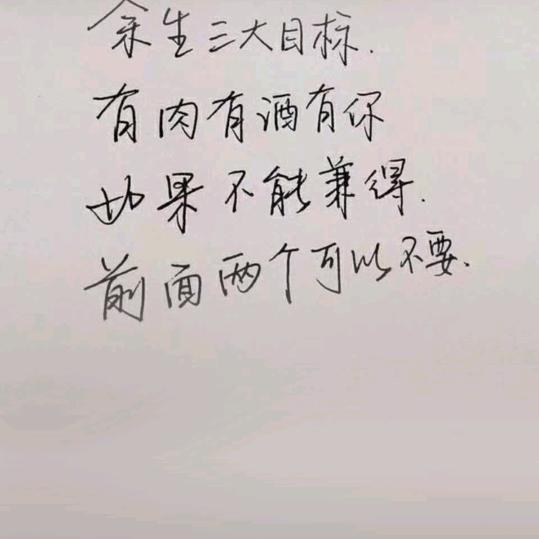 余生三大目标.
有肉有酒有你
如果不能兼得.
前面两个可以不要.